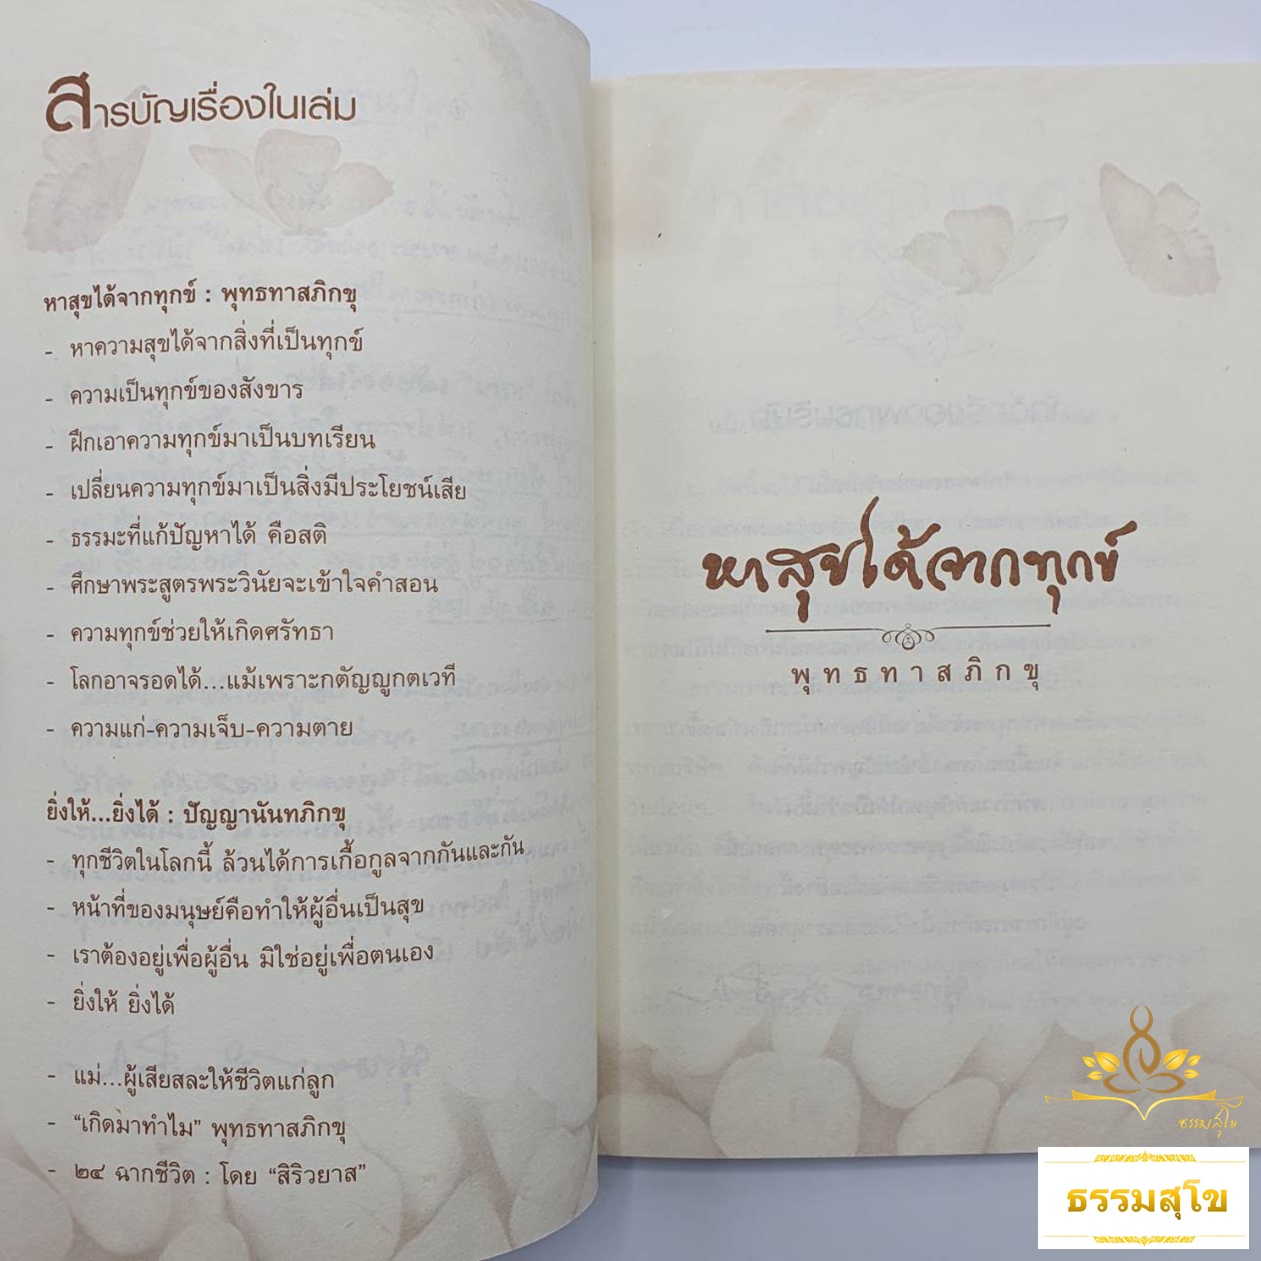 สารบัญเรื่องในเล่ม
หาสุขได้จากทุกข์ : พุทธทาสภิกขุ
- หาความสุขได้จากสิ่งที่เป็นทุกข์
- ความเป็นทุกข์ของสังขาร
- ฝึกเอาความทุกข์มาเป็นบทเรียน
- เปลี่ยนความทุกข์มาเป็นสิ่งมีประโยชน์เสีย
- ธรรมะที่แก้ปัญหาได้ คือสติ
- ศึกษาพระสูตรพระวินัยจะเข้าใจคำสอน
- ความทุกข์ช่วยให้เกิดศรัทธา
- โลกอาจรอดได้...แม้เพราะกตัญญูกตเวที
- ความแก่-ความเจ็บ-ความตาย
ยิ่งให้...ยิ่งได้ : ปัญญานันทภิกขุ
- ทุกชีวิตในโลกนี้ ล้วนได้การเกื้อกูลจากกันและกัน
- หน้าที่ของมนุษย์คือทำให้ผู้อื่นเป็นสุข
- เราต้องอยู่เพื่อผู้อื่น มิใช่อยู่เพื่อตนเอง
- ยิ่งให้ ยิ่งได้
- แม่...ผู้เสียสละให้ชีวิตแก่ลูก
- “เกิดมาทำไม” พุทธทาสภิกขุ
- ๒๔ ฉากชีวิต : โดย “สิริวยาส”
หาสุขได้จากทุกข์
พุทธทาสภิกขุ
ธรรมสุโข
ธรรมสุโข